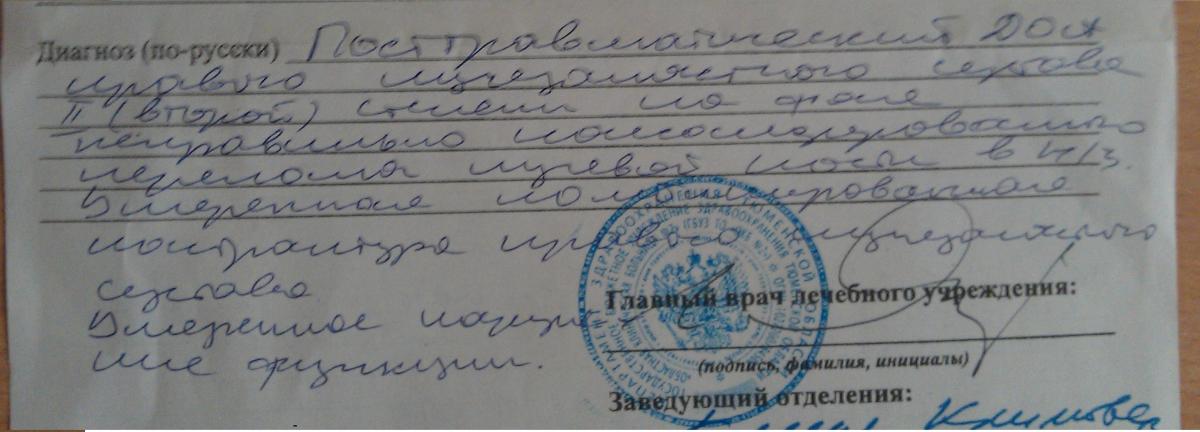 Диагноз (по-русски) Посттравматический ДОА
правого лучезапястного сустава
II (второй) степени на фоне
неправильно консолидированного
перелома лучевой кости в н/з.
Умеренная комбинированная
контрактура правого лучезапястного
сустава.
Главный врач лечебного учреждения:
Умеренное наруше
ние функции.
(подпись, фамилия, инициалы)
Заведующий отделения: